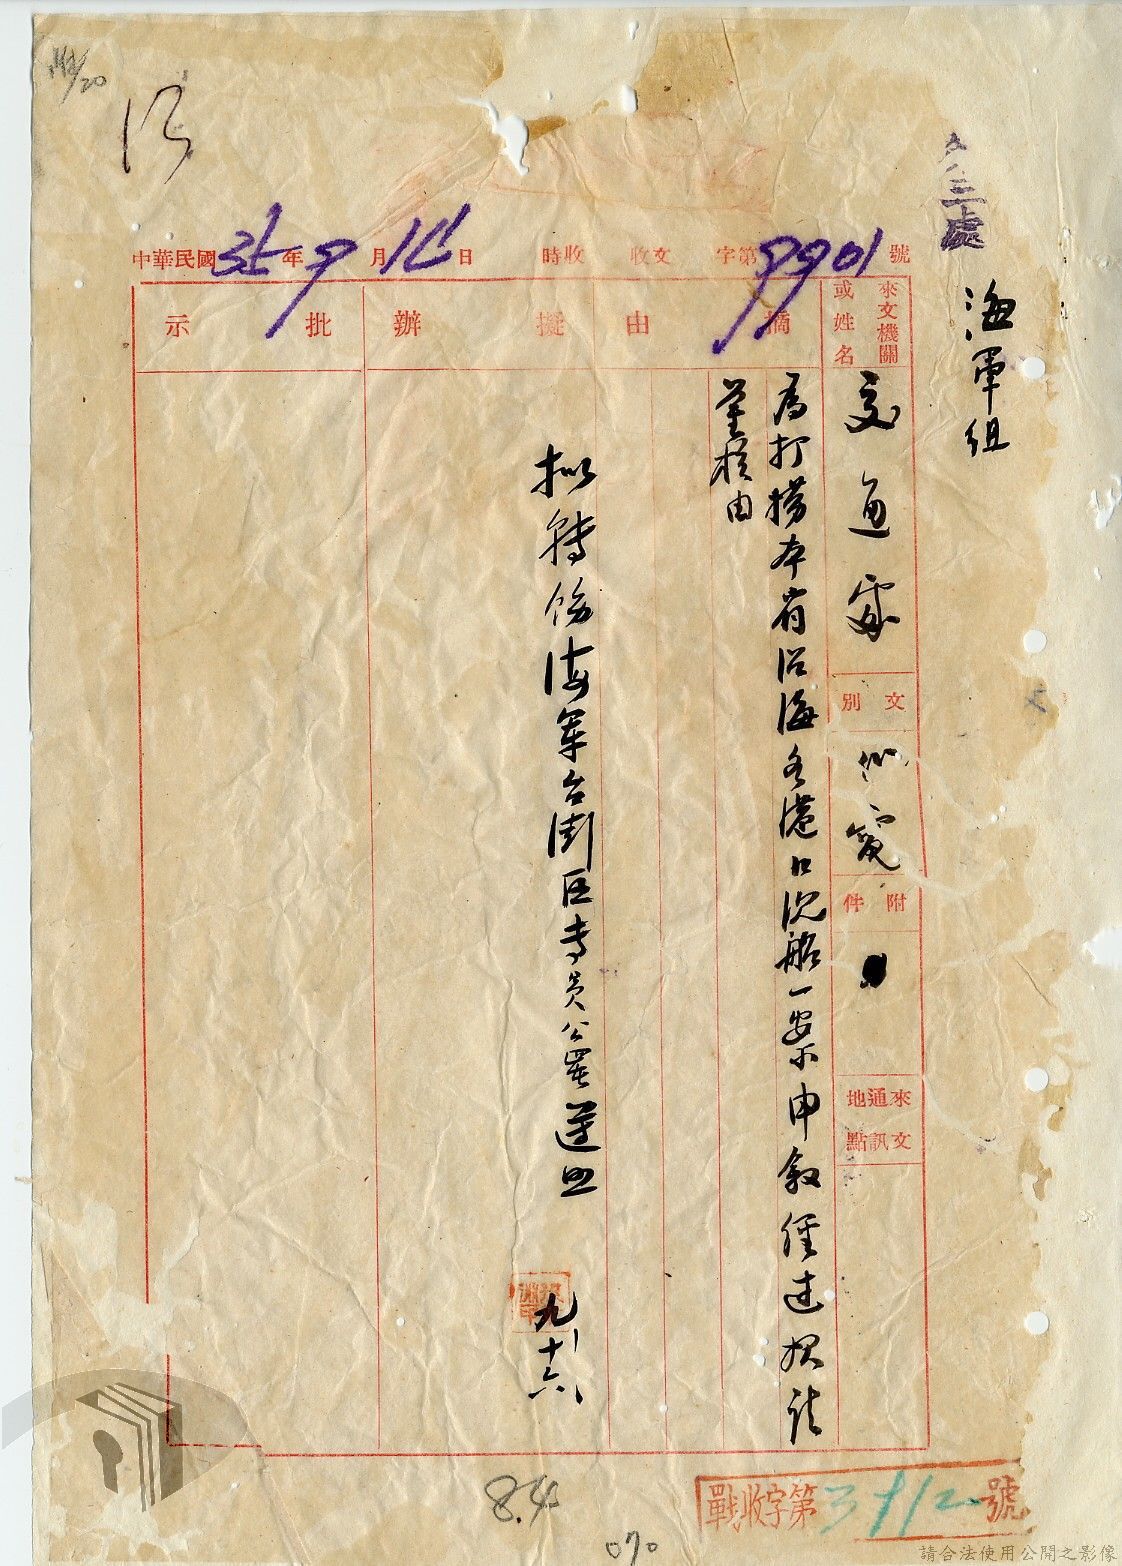 三處
海軍組
中華民國35年9月14日 時收 收文 字第9901號
來文機關或姓名
交通處
文別
代電
附件
來文通訊地點
摘由
為打撈本省沿海各港口沉船一案申敘經過祈請
鑒核由
擬辦
拟轉飭海軍台澎區專員公署遵照
九、十六、
批示
戰收字第3112號
8.4
070
請合法使用公開之影像